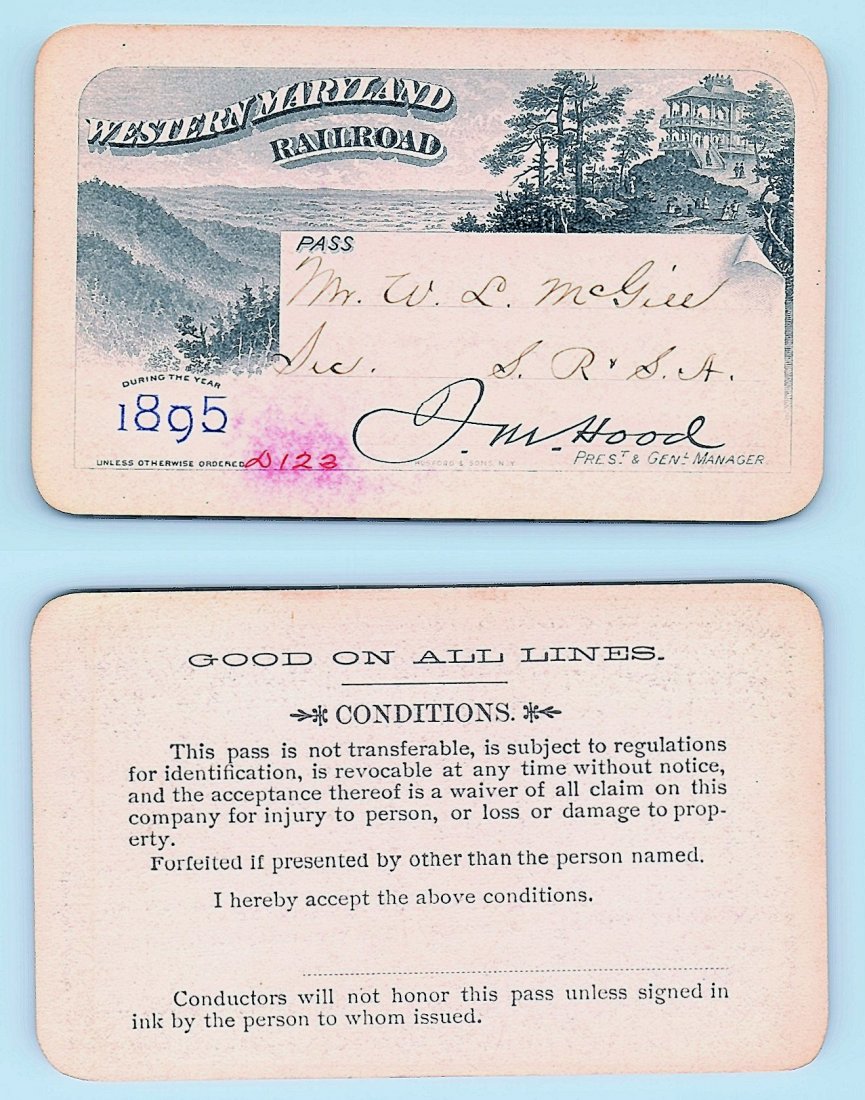 WESTERN MARYLAND
RAILROAD
PASS
Mr. W. L. McGill
Sec. S. R & S. A.
DURING THE YEAR
1895
J. M. Hood
UNLESS OTHERWISE ORDERED D 123
HOSFORD & SONS, N.Y.
PREST & GENL MANAGER
GOOD ON ALL LINES.
CONDITIONS.
This pass is not transferable, is subject to regulations
for identification, is revocable at any time without notice,
and the acceptance thereof is a waiver of all claim on this
company for injury to person, or loss or damage to prop-
erty.
Forfeited if presented by other than the person named.
I hereby accept the above conditions.
Conductors will not honor this pass unless signed in
ink by the person to whom issued.